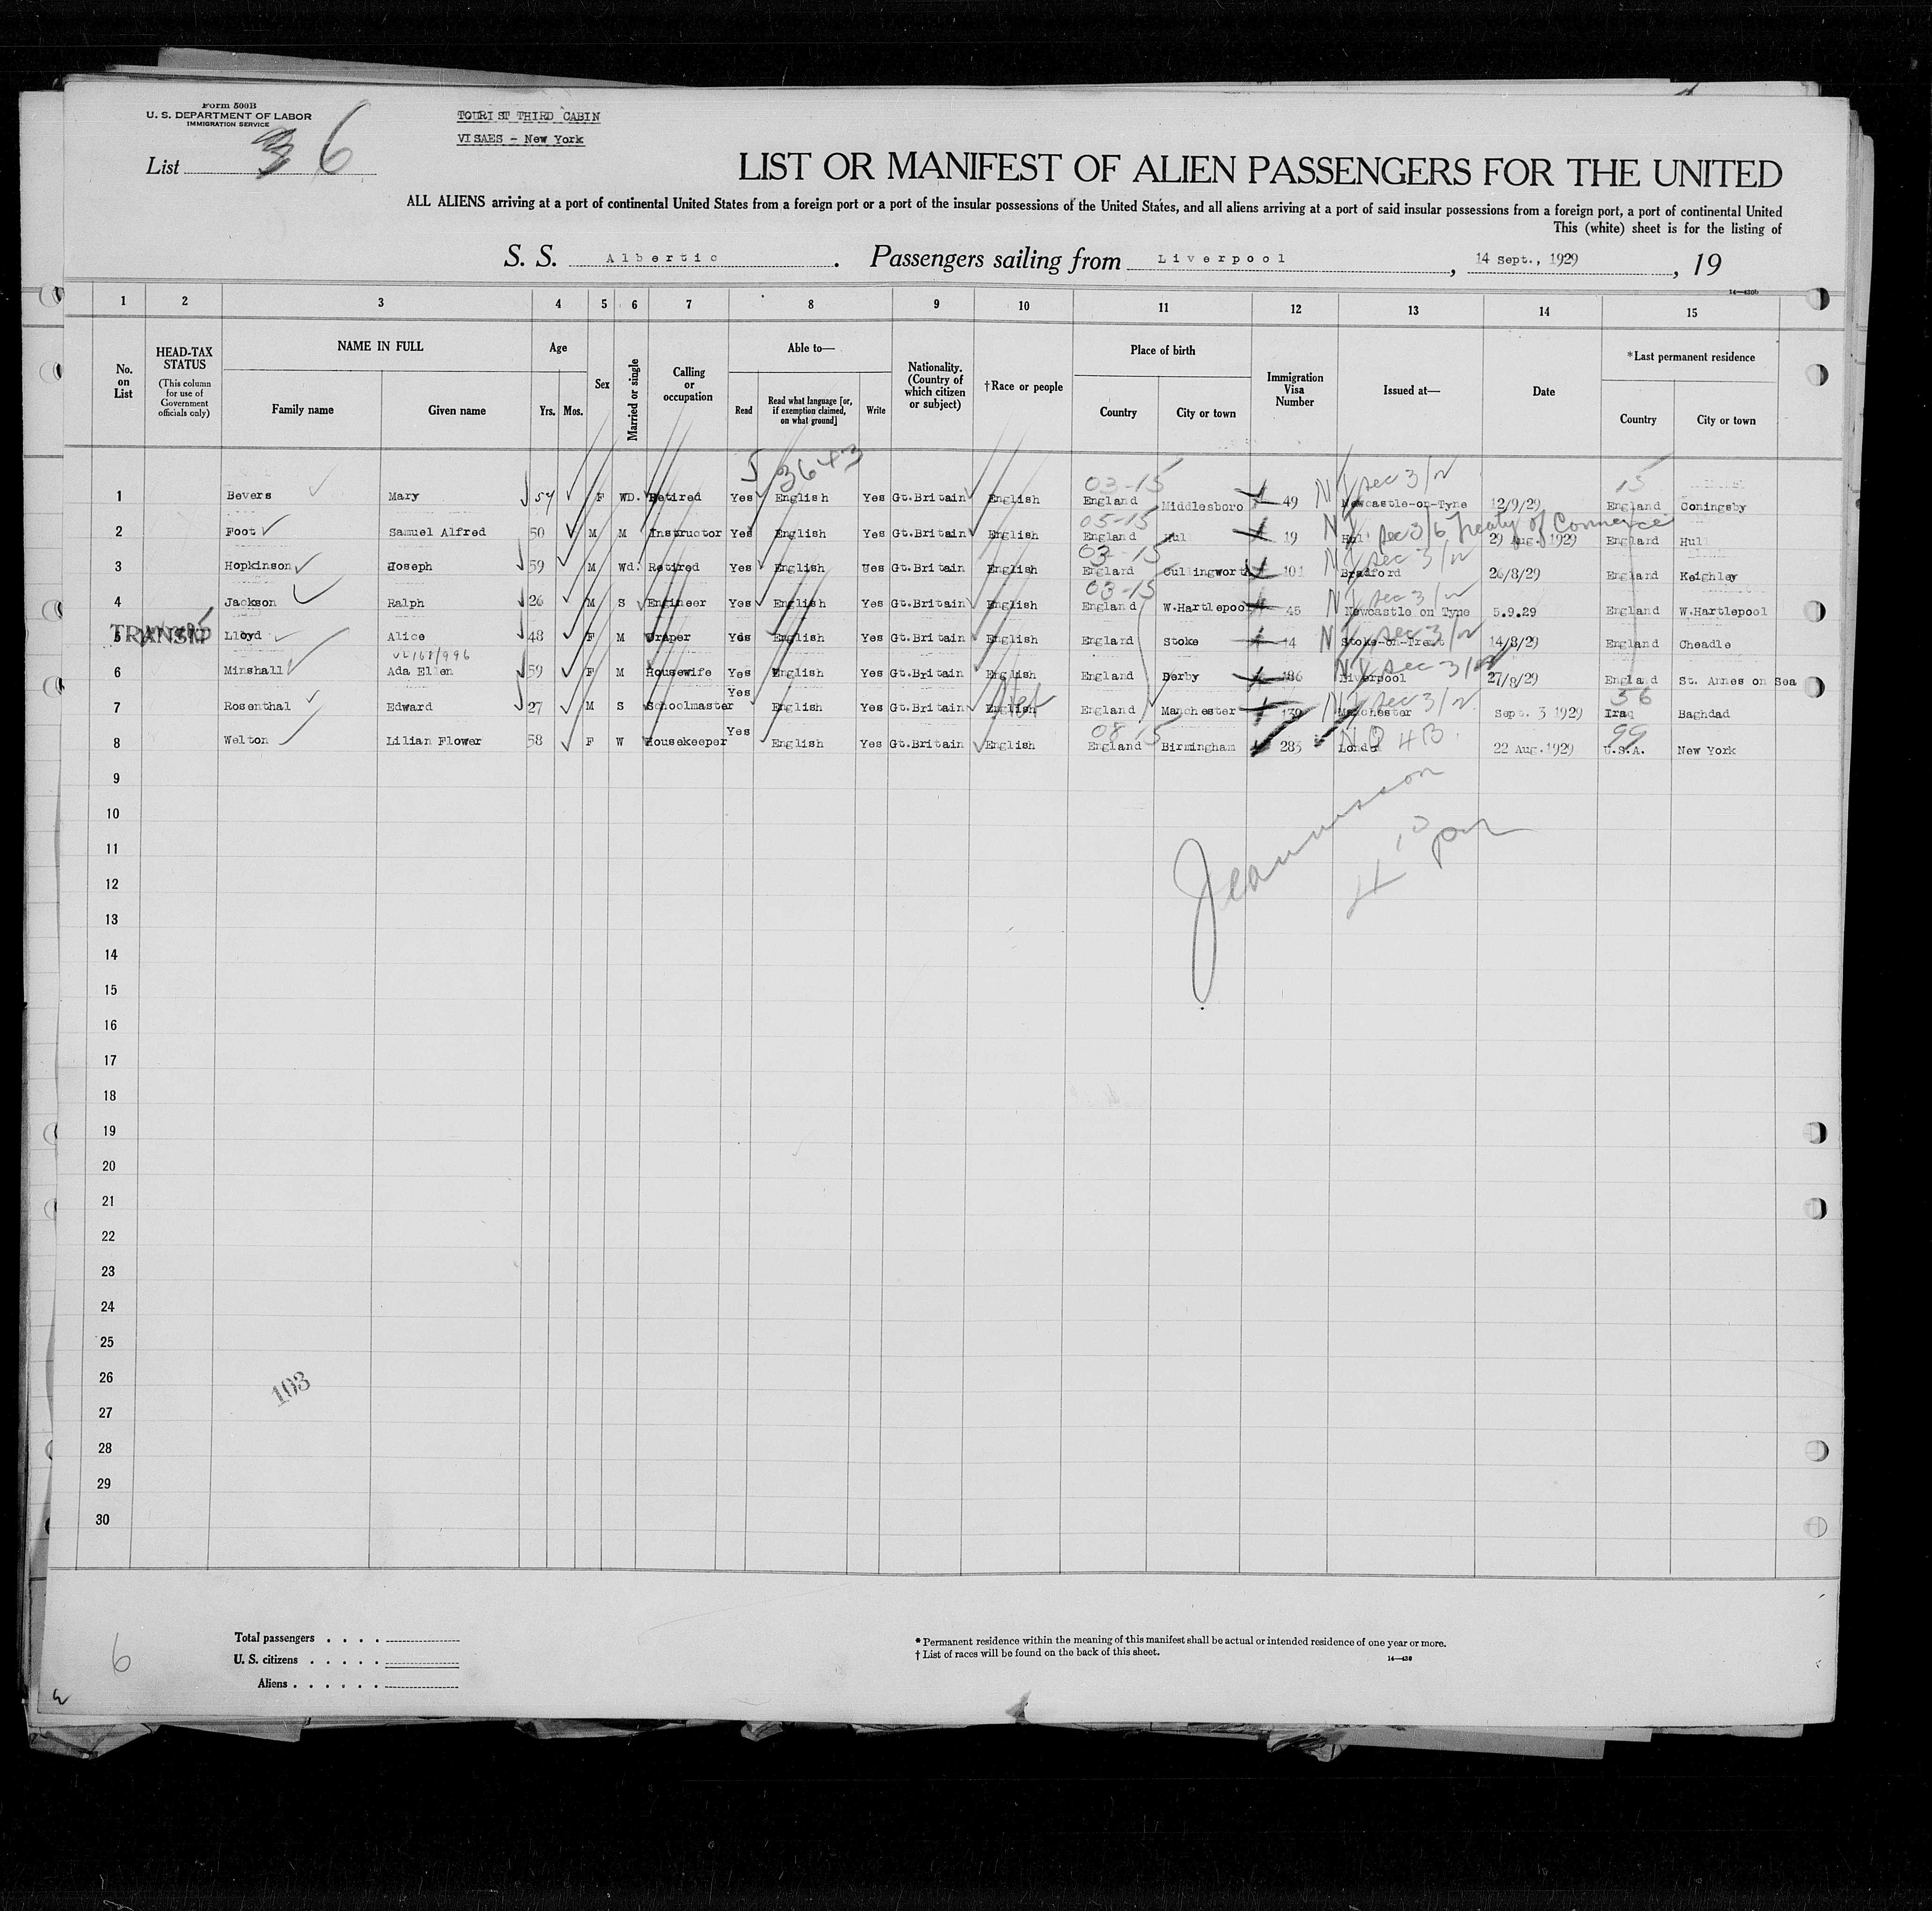 Form 500B
U. S. DEPARTMENT OF LABOR
IMMIGRATION SERVICE
TOURIST THIRD CABIN
VISAES - New York
List 3 6
LIST OR MANIFEST OF ALIEN PASSENGERS FOR THE UNITED
ALL ALIENS arriving at a port of continental United States from a foreign port or a port of the insular possessions of the United States, and all aliens arriving at a port of said insular possessions from a foreign port, a port of continental United
This (white) sheet is for the listing of
S. S. Albertic. Passengers sailing from Liverpool, 14 Sept., 1929, 19
14—430b
1 2 3 4 5 6 7 8 9 10 11 12 13 14 15
No. on List
HEAD-TAX STATUS (This column for use of Government officials only)
NAME IN FULL Family name Given name
Age Yrs. Mos.
Sex
Married or single
Calling or occupation
Able to— Read Read what language [or, if exemption claimed, on what ground] Write
Nationality. (Country of which citizen or subject)
†Race or people
Place of birth Country City or town
Immigration Visa Number
Issued at—
Date
*Last permanent residence Country City or town
5 3643
03-15 N I sec 3/2 15
1 Bevers Mary 54 F WD. Retired Yes English Yes Gt.Britain English England Middlesboro 49 Newcastle-on-Tyne 12/9/29 England Coningsby
05-15 sec 3/6 Treaty of Commerce
2 Foot Samuel Alfred 50 M M Instructor Yes English Yes Gt.Britain English England Hull 19 Hull 29 Aug. 1929 England Hull
03-15 N I sec 3/2
3 Hopkinson Joseph 59 M Wd. Retired Yes English Ues Gt.Britain English England Cullingworth 101 Bradford 26/8/29 England Keighley
03-15 N I sec 3/2
4 Jackson Ralph 26 M S Engineer Yes English Yes Gt.Britain English England W.Hartlepool 45 Newcastle on Tyne 5.9.29 England W.Hartlepool
TRANSIT N I sec 3/2
5 Lloyd Alice 48 F M Draper Yes English Yes Gt.Britain English England Stoke 14 Stoke-on-Trent 14/8/29 England Cheadle
N I sec 3/2
6 Minshall Ada Ellen 59 F M Housewife Yes English Yes Gt.Britain English England Derby 186 Liverpool 27/8/29 England St. Annes on Sea
N I sec 3/2 56
7 Rosenthal Edward 27 M S Schoolmaster Yes English Yes Gt.Britain English England Manchester 139 Manchester Sept. 3 1929 Iraq Baghdad
08-15 N Q 4B 99
8 Welton Lilian Flower 58 F W Housekeeper Yes English Yes Gt.Britain English England Birmingham 285 London 22 Aug.1929 U.S.A. New York
9
10
11
12
13
14
15
16
17
18
19
20
21
22
23
24
25
26
103
27
28
29
30
6
Total passengers . . . .
U. S. citizens . . . . .
Aliens . . . . . .
* Permanent residence within the meaning of this manifest shall be actual or intended residence of one year or more.
† List of races will be found on the back of this sheet.
14—430